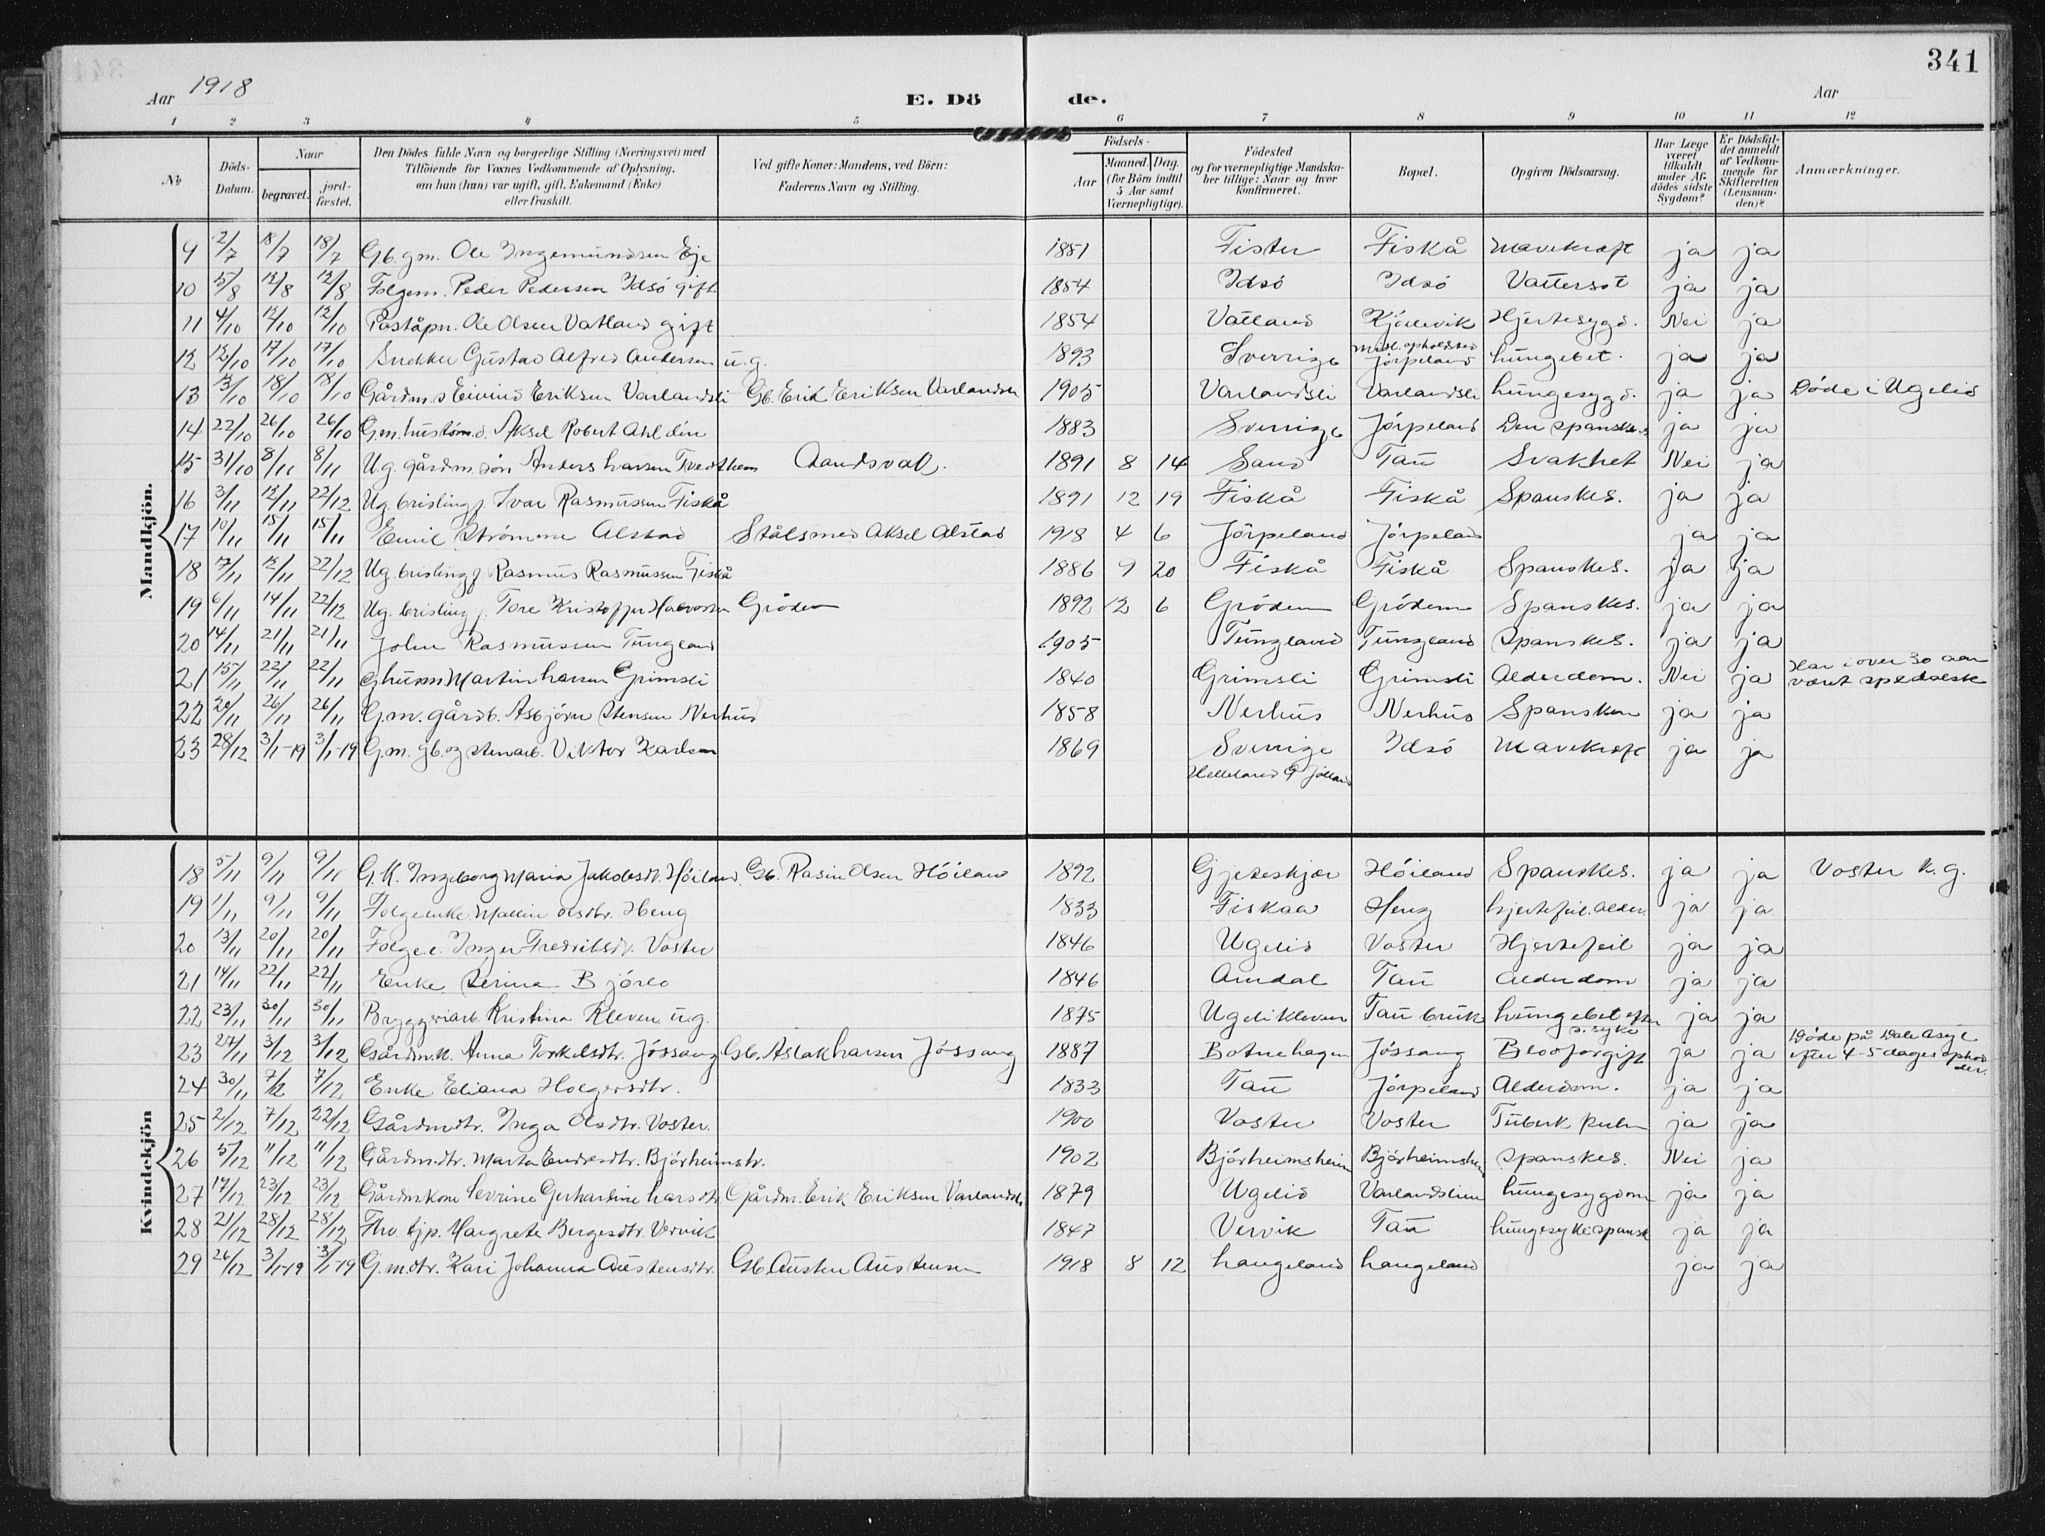 341
Aar 1918
E. Dö de.
Aar
1 2 3 4 5 6 7 8 9 10 11 12
No
Döds-Datum.
Naar
begravet.
jordfæstet.
Den Dödes fulde Navn og borgerlige Stilling (Næringsvei) med Tilföiende for Voxnes Vedkommende af Oplysning, om han (hun) var ugift, gift, Enkemand (Enke) eller fraskilt.
Ved gifte Koner: Mandens, ved Börn: Faderens Navn og Stilling.
Födsels-
Aar
Maaned. Dag. (for Börn indtil 5 Aar samt Værnepligtige).
Födested og for værnepligtige Mandskaber tillige: Naar og hvor Konfirmeret.
Bopæl.
Opgiven Dödsaarsag.
Har Læge været tilkaldt under Afdödes sidste Sygdom?
Er Dödsfaldet anmeldt af Vedkommende for Skifteretten (Lensmanden)?
Anmærkninger.
Mandkjön.
9 2/7 8/7 18/7 Gb. gm. Ole Ingemundsen Eje 1851 Fister Fiskå Mavekræft ja ja
10 5/8 12/8 12/8 Folgem. Peder Pedersen Idsö gift 1854 Idsö Idsö Vattersot ja ja
11 4/10 12/10 12/10 Poståpn. Ole Olsen Vatland gift 1854 Vatland Kjölevik Hjertesygd. Nei ja
12 12/10 17/10 17/10 Snekker Gustav Alfred Andersen u.g. 1893 Sverrige Midl. opholdsted Jörpeland lungebet. ja ja
13 13/10 18/10 18/10 Gårdm.s Eivind Eriksen Varlandsli Gb. Erik Eriksen Varlandsli 1905 Varlandsli Varlandsli lungesygd. ja ja Döde i Ugelid
14 22/10 26/10 26/10 G.m. hustöm. Aksel Robert Ahldén 1883 Sverrige Jörpeland Den spanske s. ja ja
15 31/10 8/11 8/11 Ug. gårdm. sön Anders Larsen Tvedthem Aandsvak. 1891 8 14 Sand Tau Svakhet Nei ja
16 3/11 12/11 22/12 Ug. brislingf. Ivar Rasmussen Fiskå 1891 12 19 Fiskå Fiskå Spanskes. ja ja
17 10/11 15/11 15/11 Emil Strömme Alstad Stålsmed Aksel Alstad 1918 4 6 Jörpeland Jörpeland ja ja
18 17/11 12/11 22/12 Ug. brislingf. Rasmus Rasmussen Fiskå 1886 9 20 Fiskå Fiskå Spanskes. ja ja
19 6/11 14/11 22/12 Ug. brislingf. Tore Kristoffer Halvorsen Gröden 1892 12 6 Grödem Grödem Spanskes. ja ja
20 14/11 21/11 21/11 John Rasmussen Tungland 1905 Tungland Tungland Spanskes. ja ja
21 15/11 22/11 22/11 Martin Larsen Grimsli 1840 Grimsli Grimsli Alderdom. Nei ja Har i over 30 aar været spedalsk
22 20/11 26/11 26/11 G.m. gårdb. Asbjörn Stensen Nerhus 1858 Nerhus Nerhus Spansken ja ja
23 28/12 3/1-19 3/1-19 G.m. gb. og stenarb. Viktor Karlsen 1869 Sverrige Idsö Mavekræft ja ja
Kvindekjön
18 5/11 9/11 9/11 G.K. Ingeborg Maria Jakobsdt. Höiland. Gb. Rasm Olsen Höiland 1892 Gjeteskjær Höiland Spanskes. ja ja Voster k.g.
19 1/11 9/11 9/11 Folgeenke Mallin Olsdtr. Heng 1833 Fiskaa Heng hjertefeil. alder. ja ja
20 13/11 20/11 20/11 Folgee. Inger Fredriksd. Voster 1846 Ugelid Voster Hjertefeil ja ja
21 14/11 22/11 22/11 Enke Serina Björlo 1846 Amdal Tau Alderdom ja ja
22 23/11 30/11 30/11 Bryggeriarb. Kristina Kleven u.g. 1875 Ugelikleven Tau bruk lungebet efter s. syke ja ja
23 27/11 3/12 3/12 Gårdm.k. Anna Torkelsdtr. Jössang Gb. Aslak Larsen Jössang 1887 Botnehagen Jössang Blodforgift ja ja Döde på Dale Asyl efter 4-5 dages ophold der.
24 30/11 7/12 7/12 Enke Eliana Holgersdtr. 1833 Tau Jörpeland Alderdom. ja ja
25 2/12 7/12 22/12 Gårdm.dtr. Inga Olsdtr. Voster. 1900 Voster Voster Tuberk pulm ja ja
26 5/12 11/12 11/12 Gårdm.dtr. Marta Endresdtr. Björheimstr. 1902 Björheimsheim Björheimsheim spanskes. Nei ja
27 17/12 23/12 23/12 Gårdmkone Sevrine Gerhardine Larsdtr. Gårdm. Erik Eriksen Varlandsli 1879 Ugelid Varlandslien lungesygdom ja ja
28 21/12 28/12 28/12 Fho. hjp. Margrete Bergesdtr. Vervik 1847 Vervik Tau lungesyke spansk ja ja
29 26/12 3/1-19 3/1-19 G.m.dtr. Kari Johanna Austensdtr. Gb. Austen Austensen 1918 8 12 Langeland Langeland ja ja